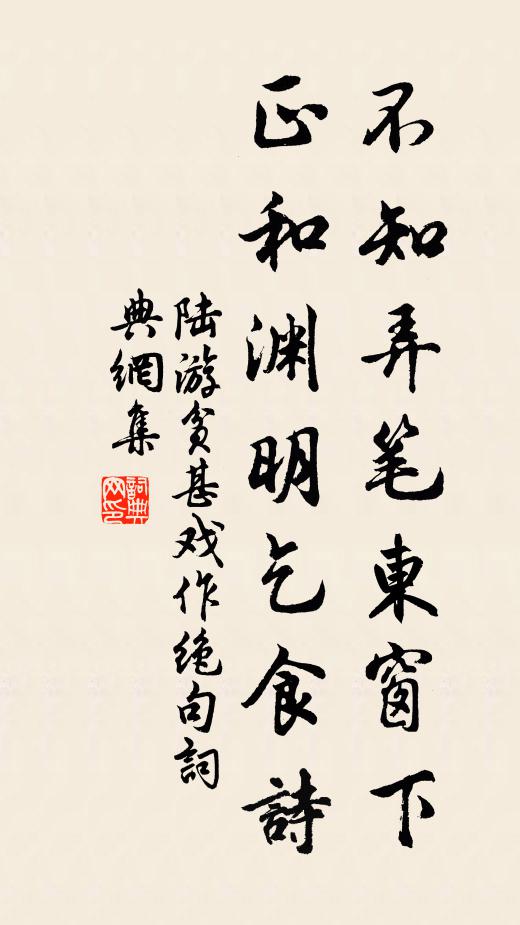 不知弄笔東窗下
正和渊明乞食詩
陆游贫甚戏作绝句詞
典網集
詞典网印